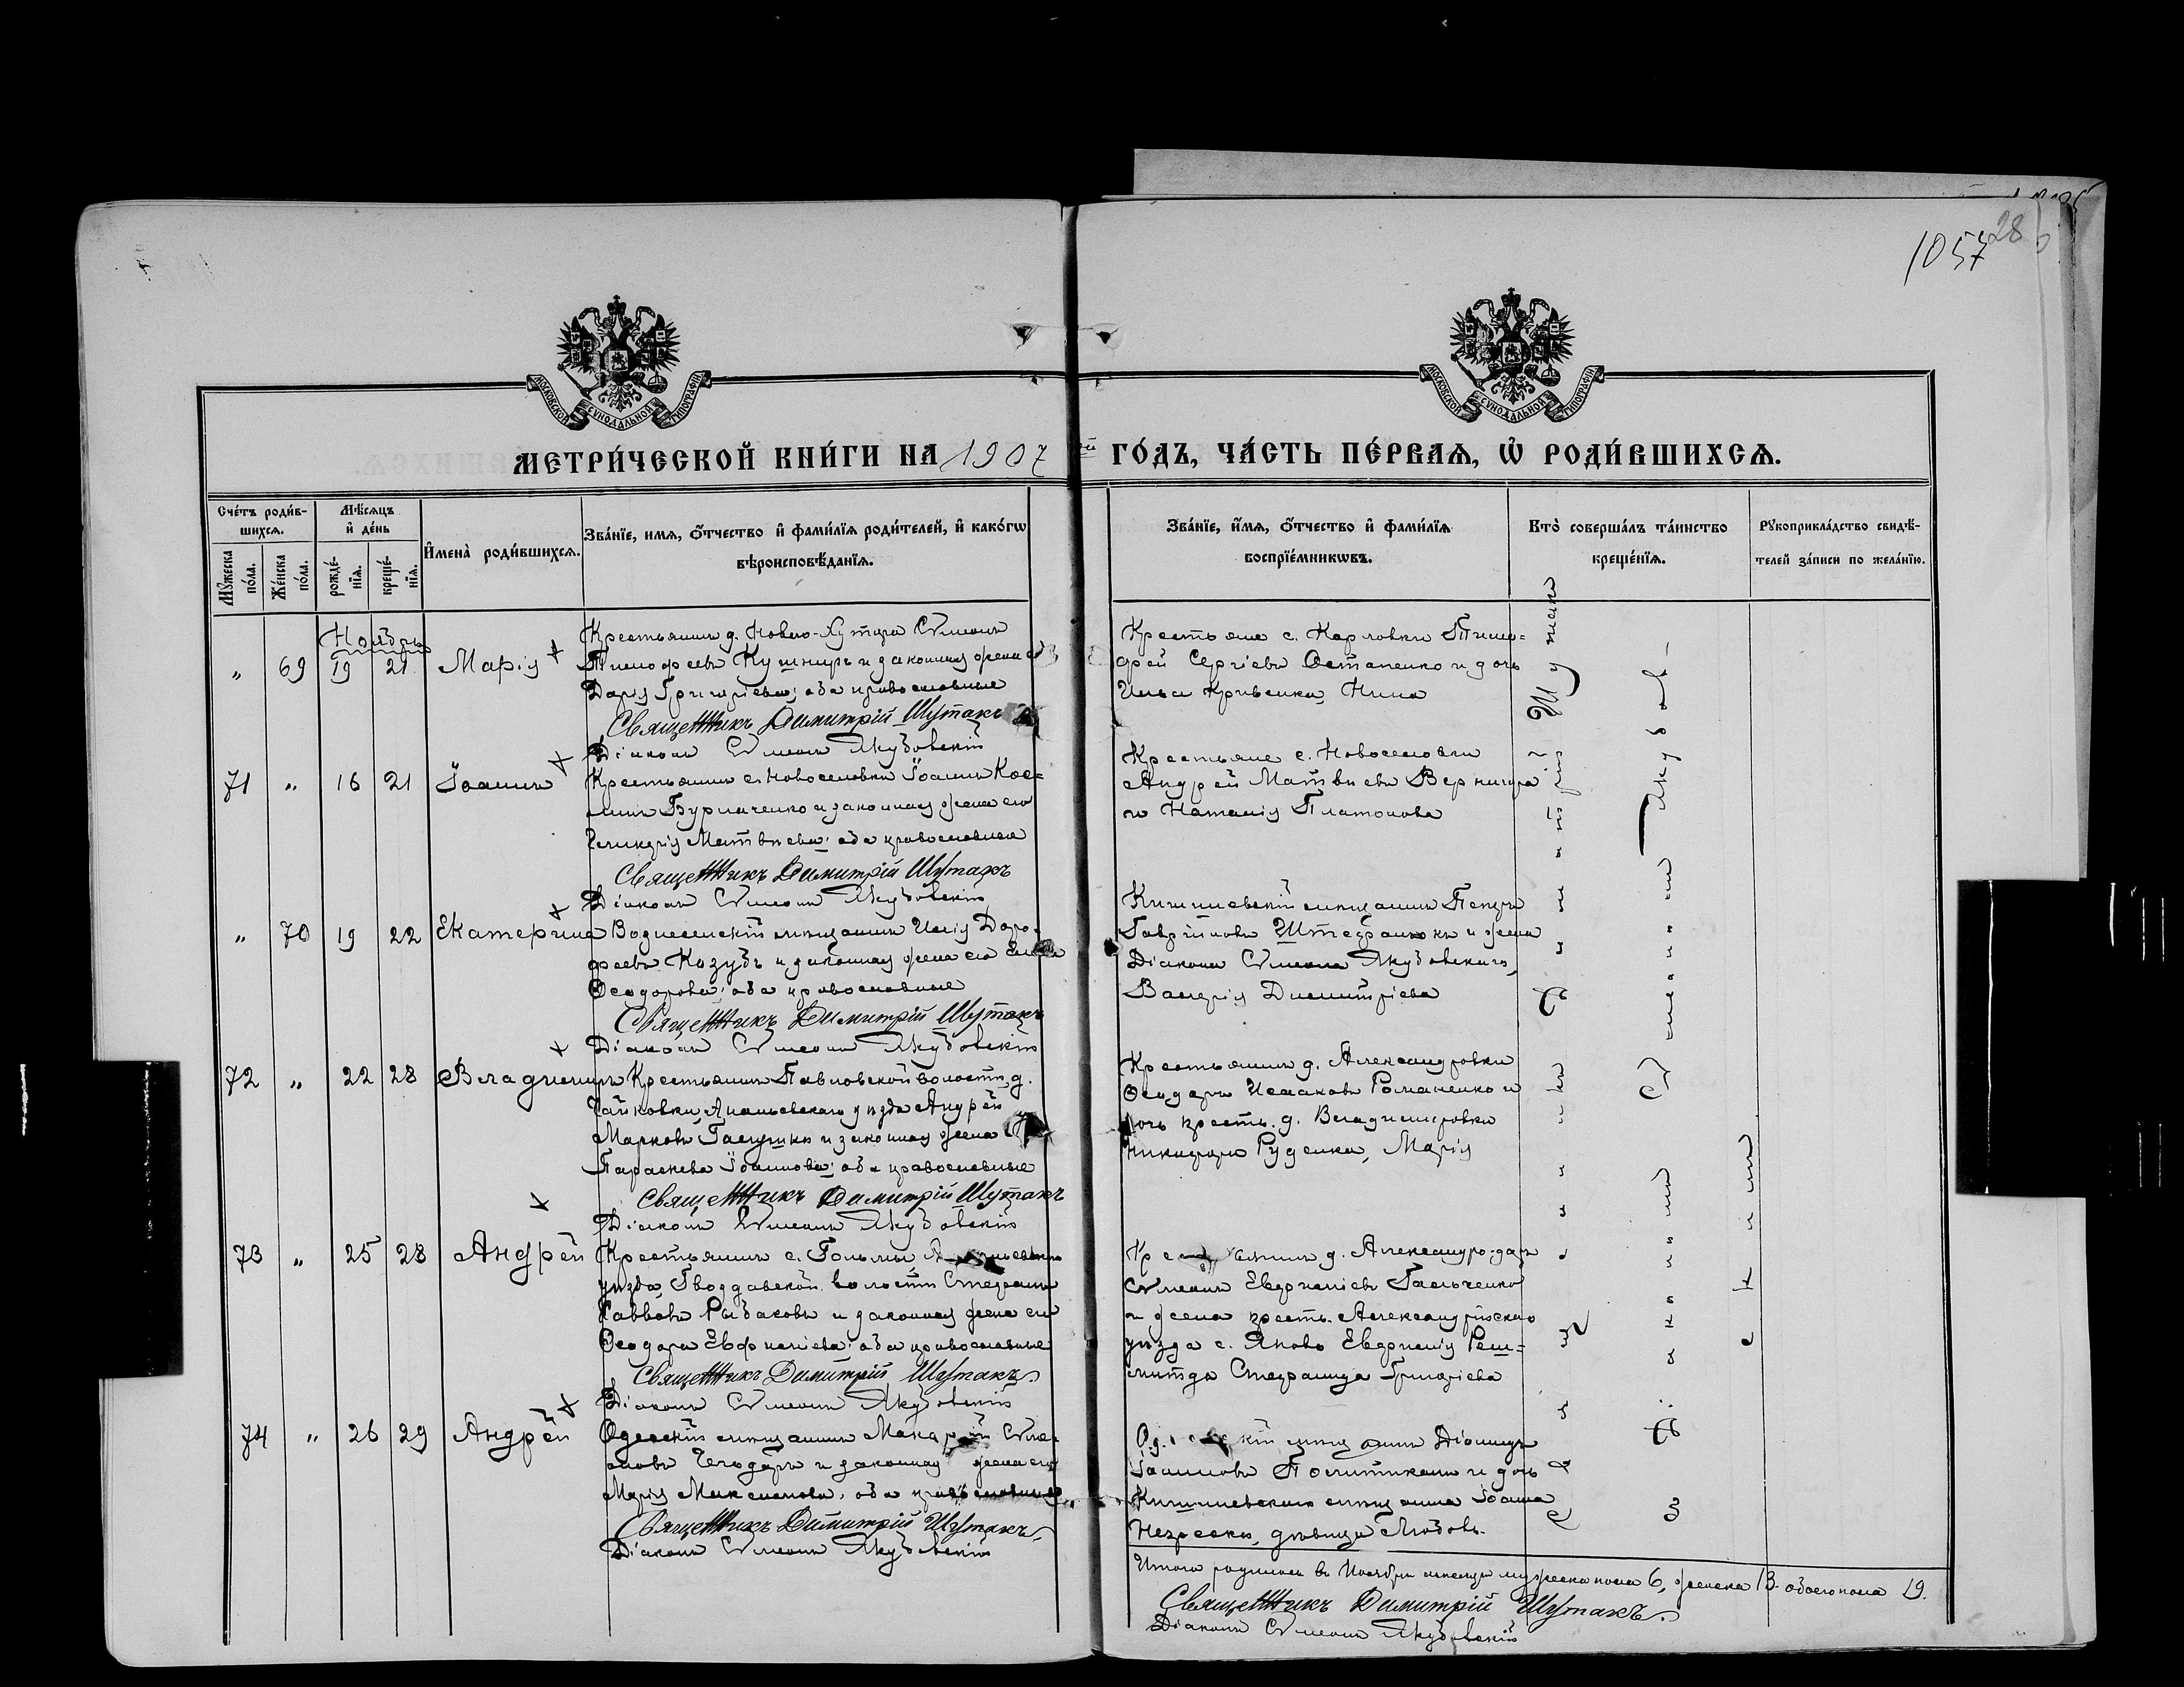 1057
28
МОСКОВСКОЙ СУНОДАЛЬНОЙ ТИПОГРАФІИ
МОСКОВСКОЙ СУНОДАЛЬНОЙ ТИПОГРАФІИ
МЕТРИ́ЧЕСКОЙ КНИ́ГИ НА 1907 ГО́ДЪ, ЧА́СТЬ ПЕ́РВАѦ, Ѡ҆ РОДИ́ВШИХСѦ.
Сче́тъ роди́в-
шихся.
Мꙋ́жеска по́ла.
Же́нска по́ла.
Мѣ́сяцъ
и҆ де́нь
рожде́-
нїѧ.
креще́-
нїѧ.
И҆мена̀ роди́вшихсѧ.
Зва́нїе, имѧ, ѻ҆́тчество и҆ фами́лїѧ роди́телей, и҆ како́гѡ
вѣроисповѣ́данїѧ.
Зва́нїе, и҆́мѧ, ѻ҆́тчество и҆ фами́лїѧ
воспрїе́мникѡвъ.
Кто̀ соверша́лъ та́инство
креще́нїѧ.
Рꙋкоприкла́дство свидѣ́-
телей за́писи по жела́нїю.
Ноябрь
" 69 19 21 Марія
Крестьянинъ д. Ново-Хутора Сѵмеонъ
Тимофеевъ Кушниръ и законная жена его
Дарія Григоріева; оба православные
Священникъ Димитрій Шутакъ
Діаконъ Сѵмеонъ Якубовскій
Крестьяне с. Карловки Тимо=
фей Сергіевъ Остапенко и дочь
Ильи Кривенка, Нина
71 " 16 21 Іоаннъ
Крестьянинъ с. Новоселовки Іоаннъ Кос=
минъ Бурлаченко и законная жена его
Гликерія Матвѣева; оба православные
Священникъ Димитрій Шутакъ
Діаконъ Сѵмеонъ Якубовскій
Крестьяне с. Новоселовки
Андрей Матвѣевъ Вернигора
и Наталія Платонова
" 70 19 22 Екатерина
Вознесенскій мѣщанинъ Илія Доро-
феевъ Козубъ и законная жена его
Ѳеодорова; оба православные
Священникъ Димитрій Шутакъ
Діаконъ Сѵмеонъ Якубовскій
Кишиневскій мѣщанинъ Петръ
Гавріиловъ и жена
Діакона Сѵмеона Якубовскаго,
Валерія Димитріева
72 " 22 28 Владимиръ
Крестьянинъ Павловской волости, д.
Ананьевскаго уѣзда Андрей
Марковъ и законная жена его
Параскева Іоаннова; оба православные
Священникъ Димитрій Шутакъ
Діаконъ Сѵмеонъ Якубовскій
Крестьянинъ д. Александровки
Ѳеодоръ Исааковъ Романенко и
дочь крест. д. Владимировки
Никифора Руденка, Марія
73 " 25 28 Андрей
Крестьянинъ с. Гольмы,
уѣзда, Гвоздавской волости Стефанъ
Саввовъ Рыбаковъ и законная жена его
Ѳеодора Евфиміева; оба православные
Священникъ Димитрій Шутакъ
Діаконъ Сѵмеонъ Якубовскій
д. Александро-даръ
Сѵмеонъ Евфиміевъ Гальченко
и жена крест. Александрійскаго
уѣзда с. Яново Евфимія
Стефанида Григоріева
74 " 26 29 Андрей
Одесскій мѣщанинъ Макарій Сѵме-
оновъ Чегодарь и законная жена его
Марія Максимова, оба православные
Священникъ Димитрій Шутакъ
Діаконъ Сѵмеонъ Якубовскій
мѣщанинъ Діонисъ
Іоанновъ и дочь
Кишиневскаго мѣщанина Іоанна
дѣвица Любовь.
Священникъ Димитрій Шутакъ
Діаконъ Сѵмеонъ Якубов-
скій
Итого родилось въ Ноябрѣ мѣсяцѣ мужеска пола 6, женска 13. обоего пола 19.
Священникъ Димитрій Шутакъ.
Діаконъ Сѵмеонъ Якубовскій